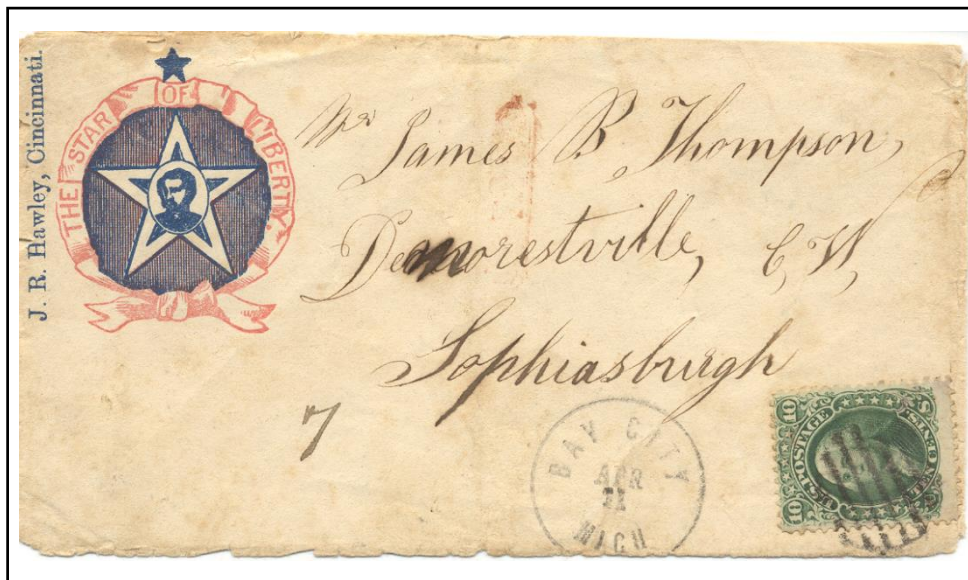 J. R. Hawley, Cincinnati.
THE STAR OF LIBERTY.
Mr James B Thompson,
Demorestville, C, W,
Sophiasburgh
7
BAY CITY
APR
21
MICH
U.S. POSTAGE
TEN CENTS
10 10
10
U S